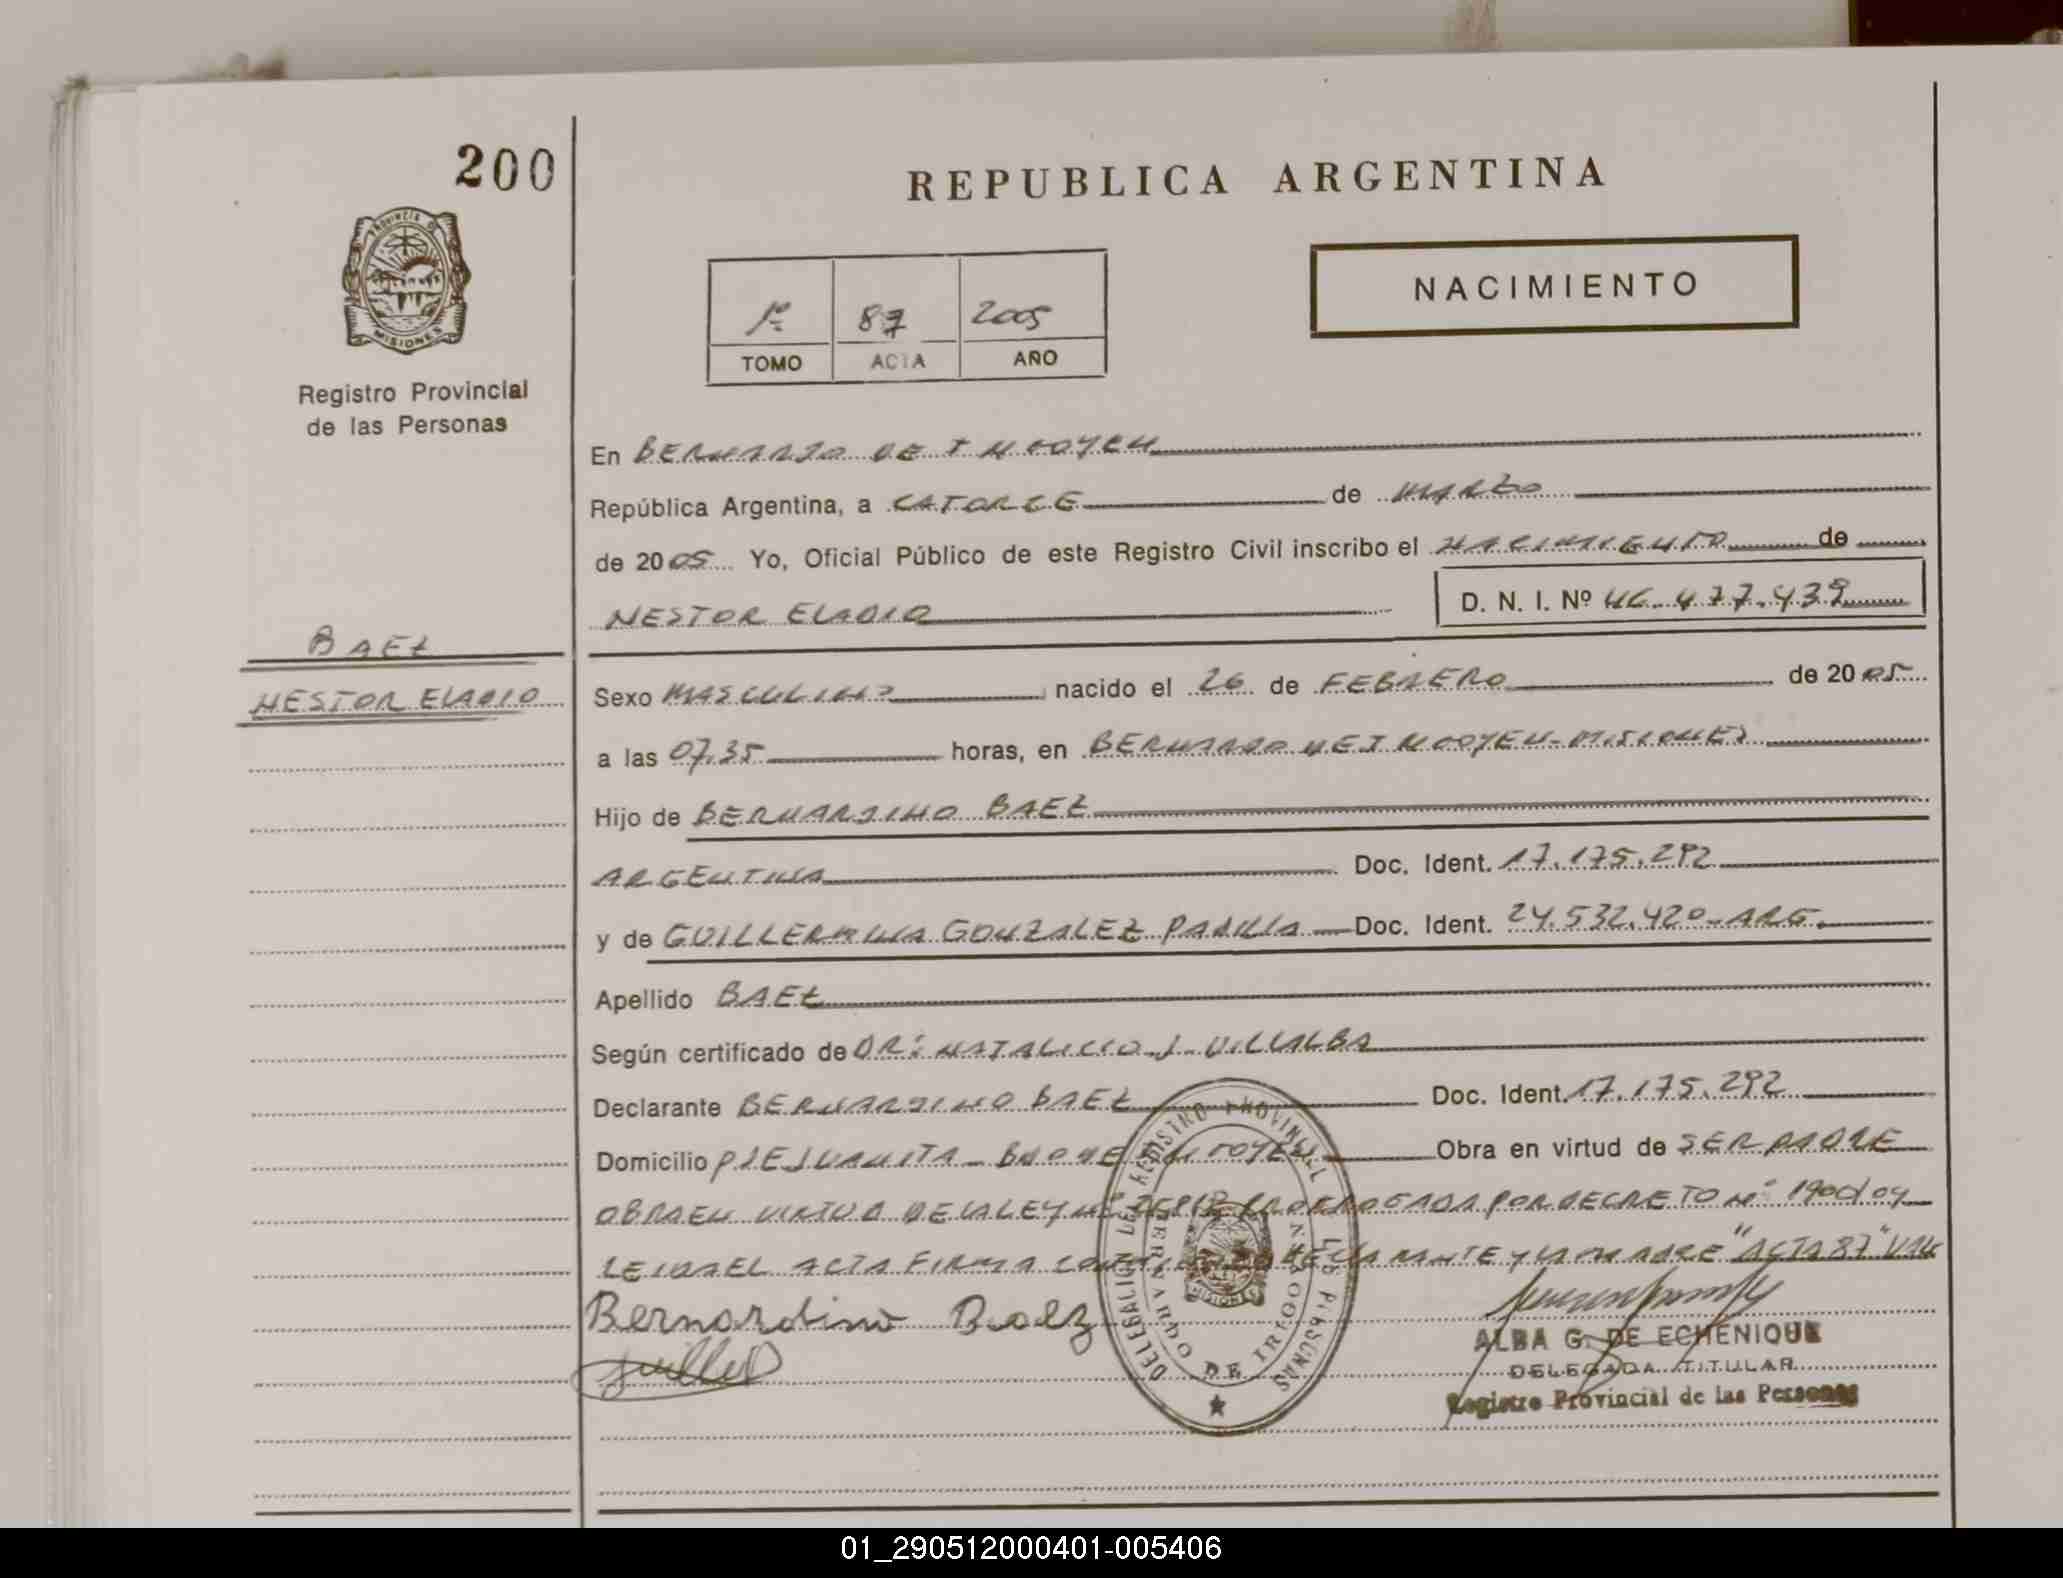 200
REPUBLICA ARGENTINA
PROVINCIA DE
MISIONES
Registro Provincial
de las Personas
1º 87 2005
TOMO ACTA AÑO
NACIMIENTO
En BERNARDO DE IRIGOYEN
República Argentina, a CATORCE de MARZO
de 2005 Yo, Oficial Público de este Registro Civil inscribo el NACIMIENTO de
NESTOR ELADIO D. N. I. Nº 46.477.439
BAEZ
NESTOR ELADIO
Sexo MASCULINO nacido el 26 de FEBRERO de 2005
a las 07,35 horas, en BERNARDO DE IRIGOYEN-MISIONES
Hijo de BERNARDINO BAEZ
ARGENTINA Doc. Ident. 17.175.292
y de GUILLERMINA GONZALEZ PADILLA Doc. Ident. 24.532.420-ARG.
Apellido BAEZ
Según certificado de DR: NATALICIO J. VILLALBA
Declarante BERNARDINO BAEZ Doc. Ident. 17.175.292
Domicilio PJE JUANITA - BDO DE IRIGOYEN Obra en virtud de SER PADRE
OBRA EN VIRTUD DE LA LEY Nº PRORROGADA POR DECRETO Nº 1900/04
LEIDA EL ACTA FIRMA CONMIGO EL DECLARANTE Y LA MADRE "ACTA 87" VALE
Bernardino Baez
DELEGACION DEL REGISTRO PROVINCIAL DE LAS PERSONAS
BERNARDO DE IRIGOYEN
MISIONES
ALBA G. DE ECHENIQUE
DELEGADA TITULAR
Registro Provincial de las Personas
01_290512000401-005406